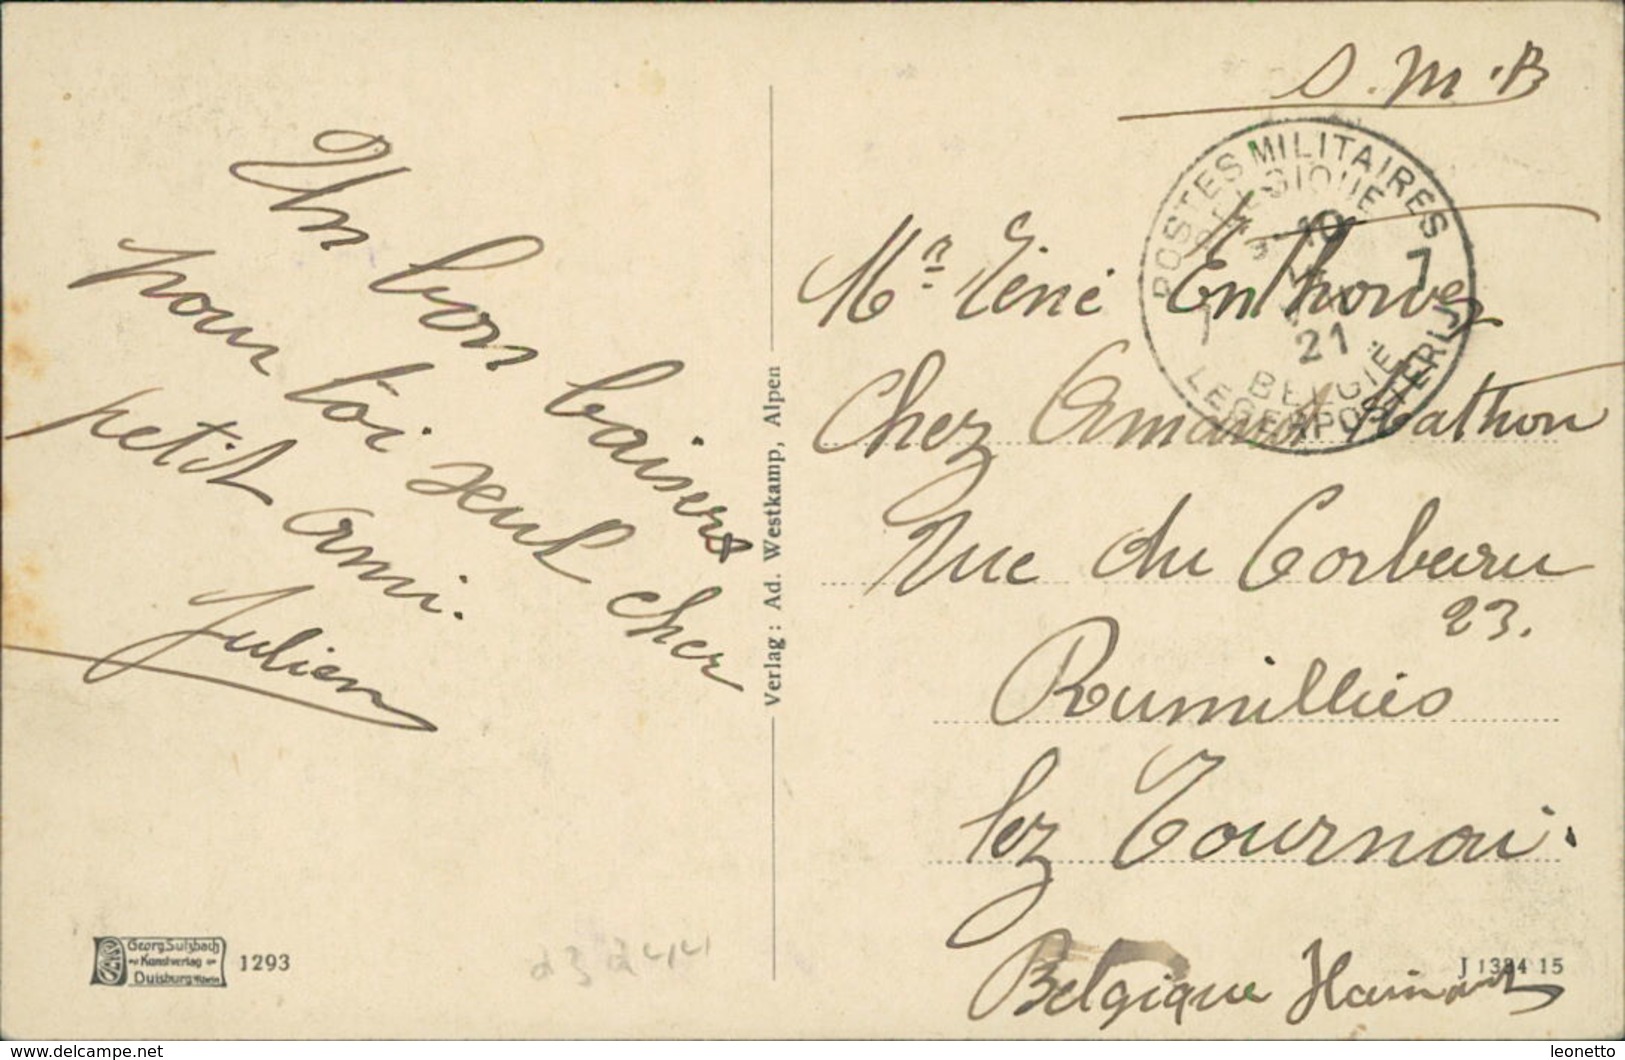 Un bon baisers
pour toi seul cher
petit ami.
Julien
Georg Sulzbach
Kunstverlag
Duisburg
1293
Verlag: Ad. Westkamp, Alpen
S.M.B
POSTES MILITAIRES
BELGIQUE
10
7 7
21
BELGIE
LEGERPOSTERIJ
Mr Réné
Chez Amand Mathon
Rue du Corbeau
23.
Rumillies
lez Tournai.
Belgique Hainaut
J 1334 15
delcampe.net
leonetto